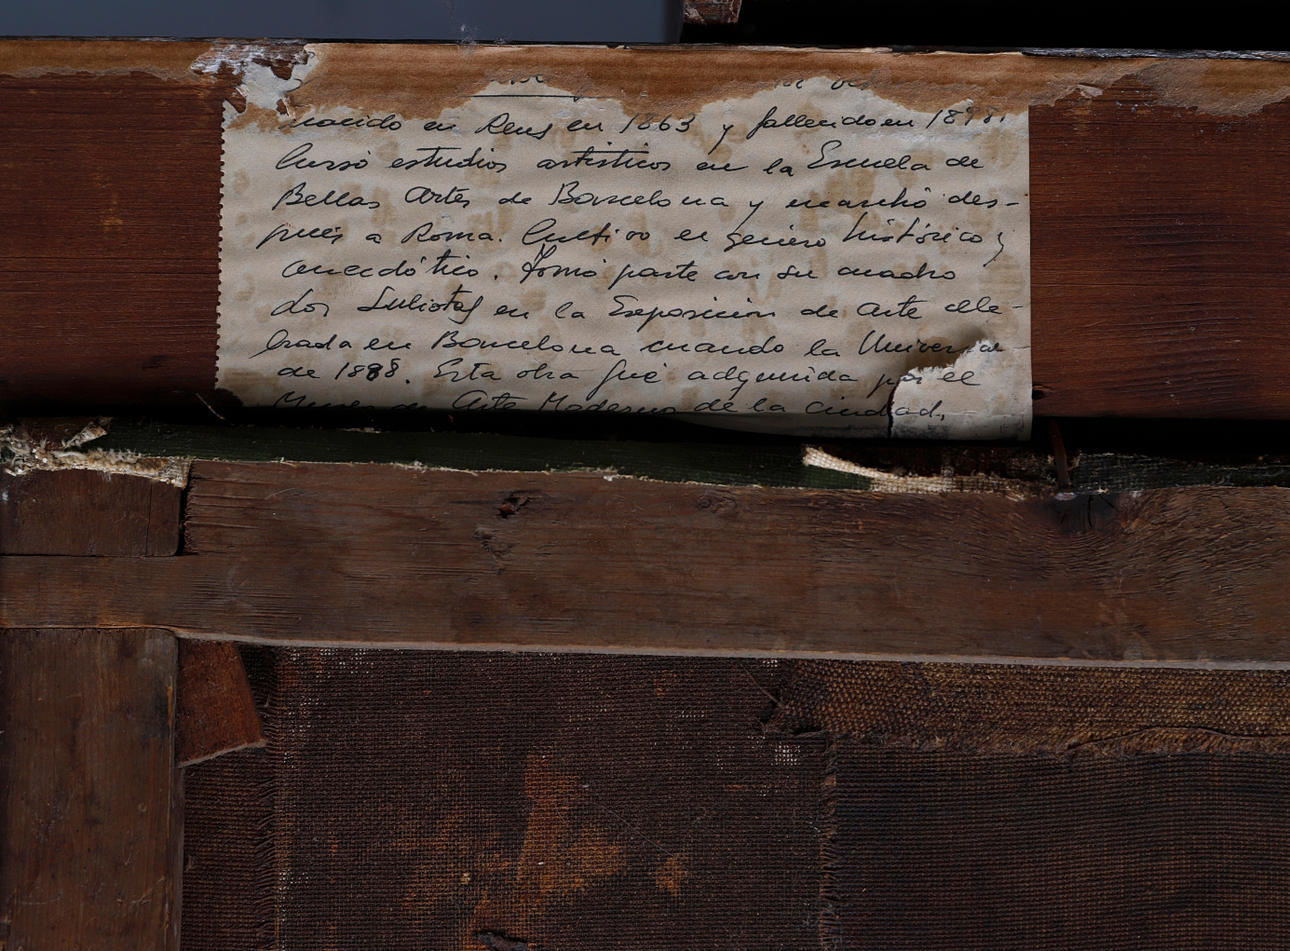 nacido en Reus en 1863 y fallecido en 1898.
Cursó estudios artísticos en la Escuela de
Bellas Artes de Barcelona y marchó des-
pués a Roma. Cultivo el género histórico y
anecdótico. Tomó parte con su cuadro
dos Suliotas en la Exposición de Arte cele-
brada en Barcelona cuando la Universal
de 1888. Esta obra fué adquirida por el
Museo de Arte Moderno de la ciudad,